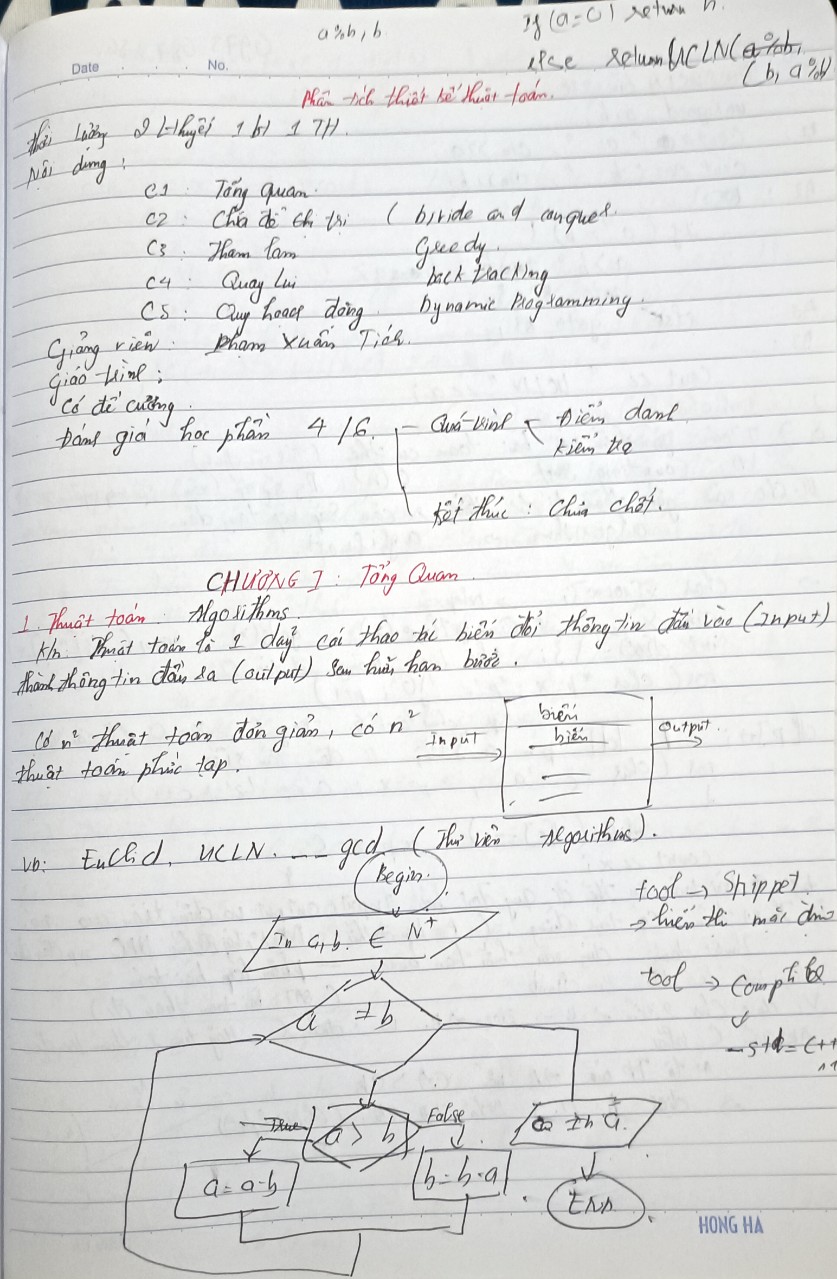 a%b, b
If (a=0) return
else return UCLN(a%b,
(b, a%b)
Date No.
Phân tích thiết kế thuật toán.
Thời lượng 2 lthuyết 1 bt 1 TH.
Nội dung:
C1: Tổng quan.
C2: Chia để trị (bivide and conquer.
C3: Tham lam Greedy.
C4: Quay lui back tracking
C5: Quy hoạch động. Dynamic Programming.
Giảng viên: Phạm Xuân Tích.
Giáo trình:
Có đề cương.
Đánh giá học phần 4/6. Quá trình Điểm danh
kiểm tra
kết thúc: Chưa chốt.
CHƯƠNG I: Tổng Quan.
1. Thuật toán: Algorithms
Kn: Thuật toán là 1 dãy các thao tác biến đổi thông tin đầu vào (Input)
thành thông tin đầu ra (output) sau hữu hạn bước.
Có n² thuật toán đơn giản, có n²
thuật toán phức tạp.
Input
biến
biến
Output.
Vb: Euclid, UCLN. gcd (Thư viện Algorithms).
Begin.
In a, b. ∈ N⁺
tool → Shippet
→ hiển thị mặc định
tool →
-std=c++
11
a ≠ b
a > b
True
False
a = a-b
b = b-a
in a
END
HONG HA